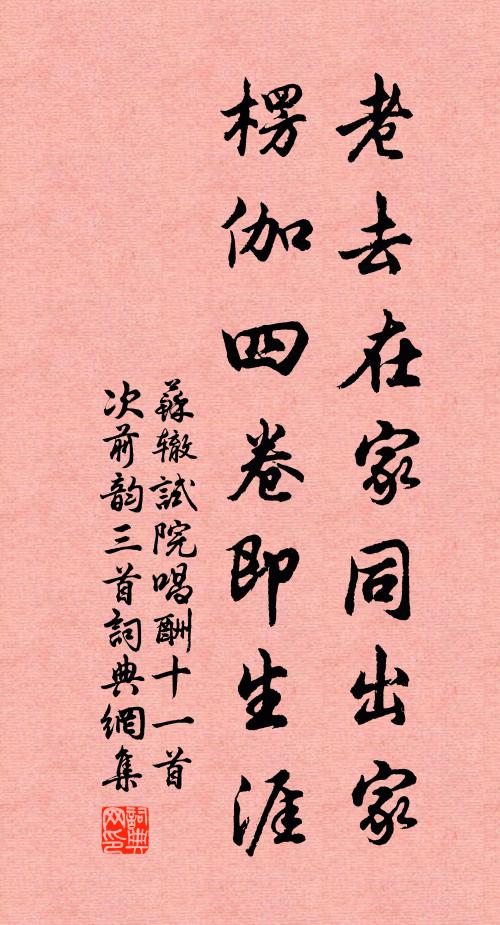 老去在家同出家
楞伽四卷即生涯
蘇轍試院唱酬十一首
次前韵三首詞典網集
詞典网印